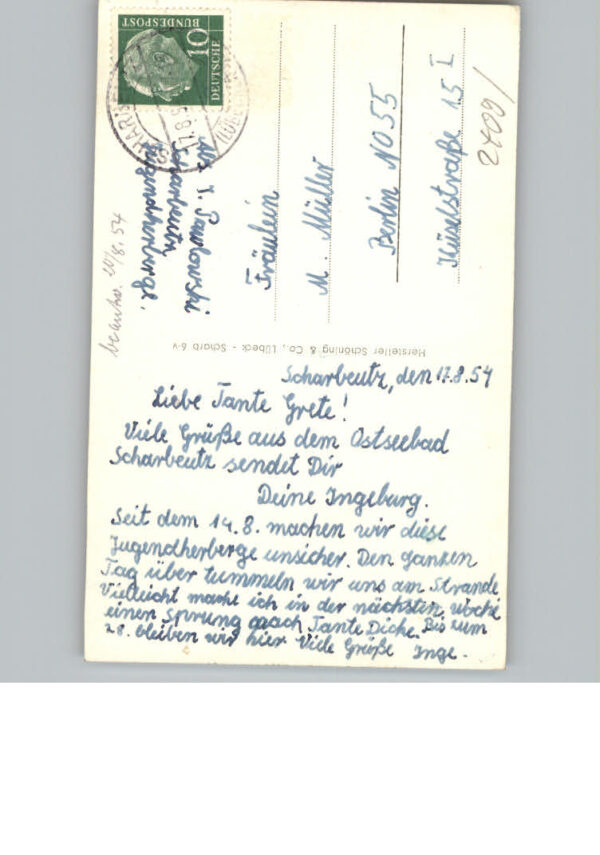 10
DEUTSCHE
BUNDESPOST
Abs. I. Pawlowski
Scharbeutz
Jugendherberge.
beantw. 20/8.54
Fräulein
M. Müller
Berlin NO 55
15 I
2409/
Hersteller Schöning & Co., Lübeck - Scharb 6-v
Scharbeutz, den 17.8.54
Liebe Tante Grete!
Viele Grüße aus dem Ostseebad
Scharbeutz sendet Dir
Deine Ingeburg.
Seit dem 14.8. machen wir diese
Jugendherberge unsicher. Den ganzen
Tag über tummeln wir uns am Strande
Vielleicht mache ich in der nächsten Woche
einen Sprung nach Tante Dicke. Bis zum
28. bleiben wir hier Viele Grüße Inge.